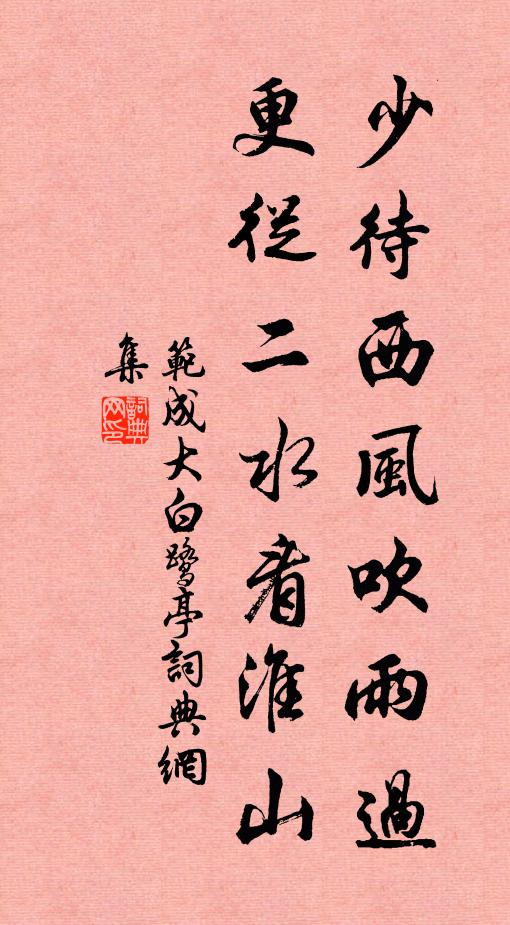 少待西風吹雨過
更從二水看淮山
範成大白鷺亭詞典網
集
詞典
网印